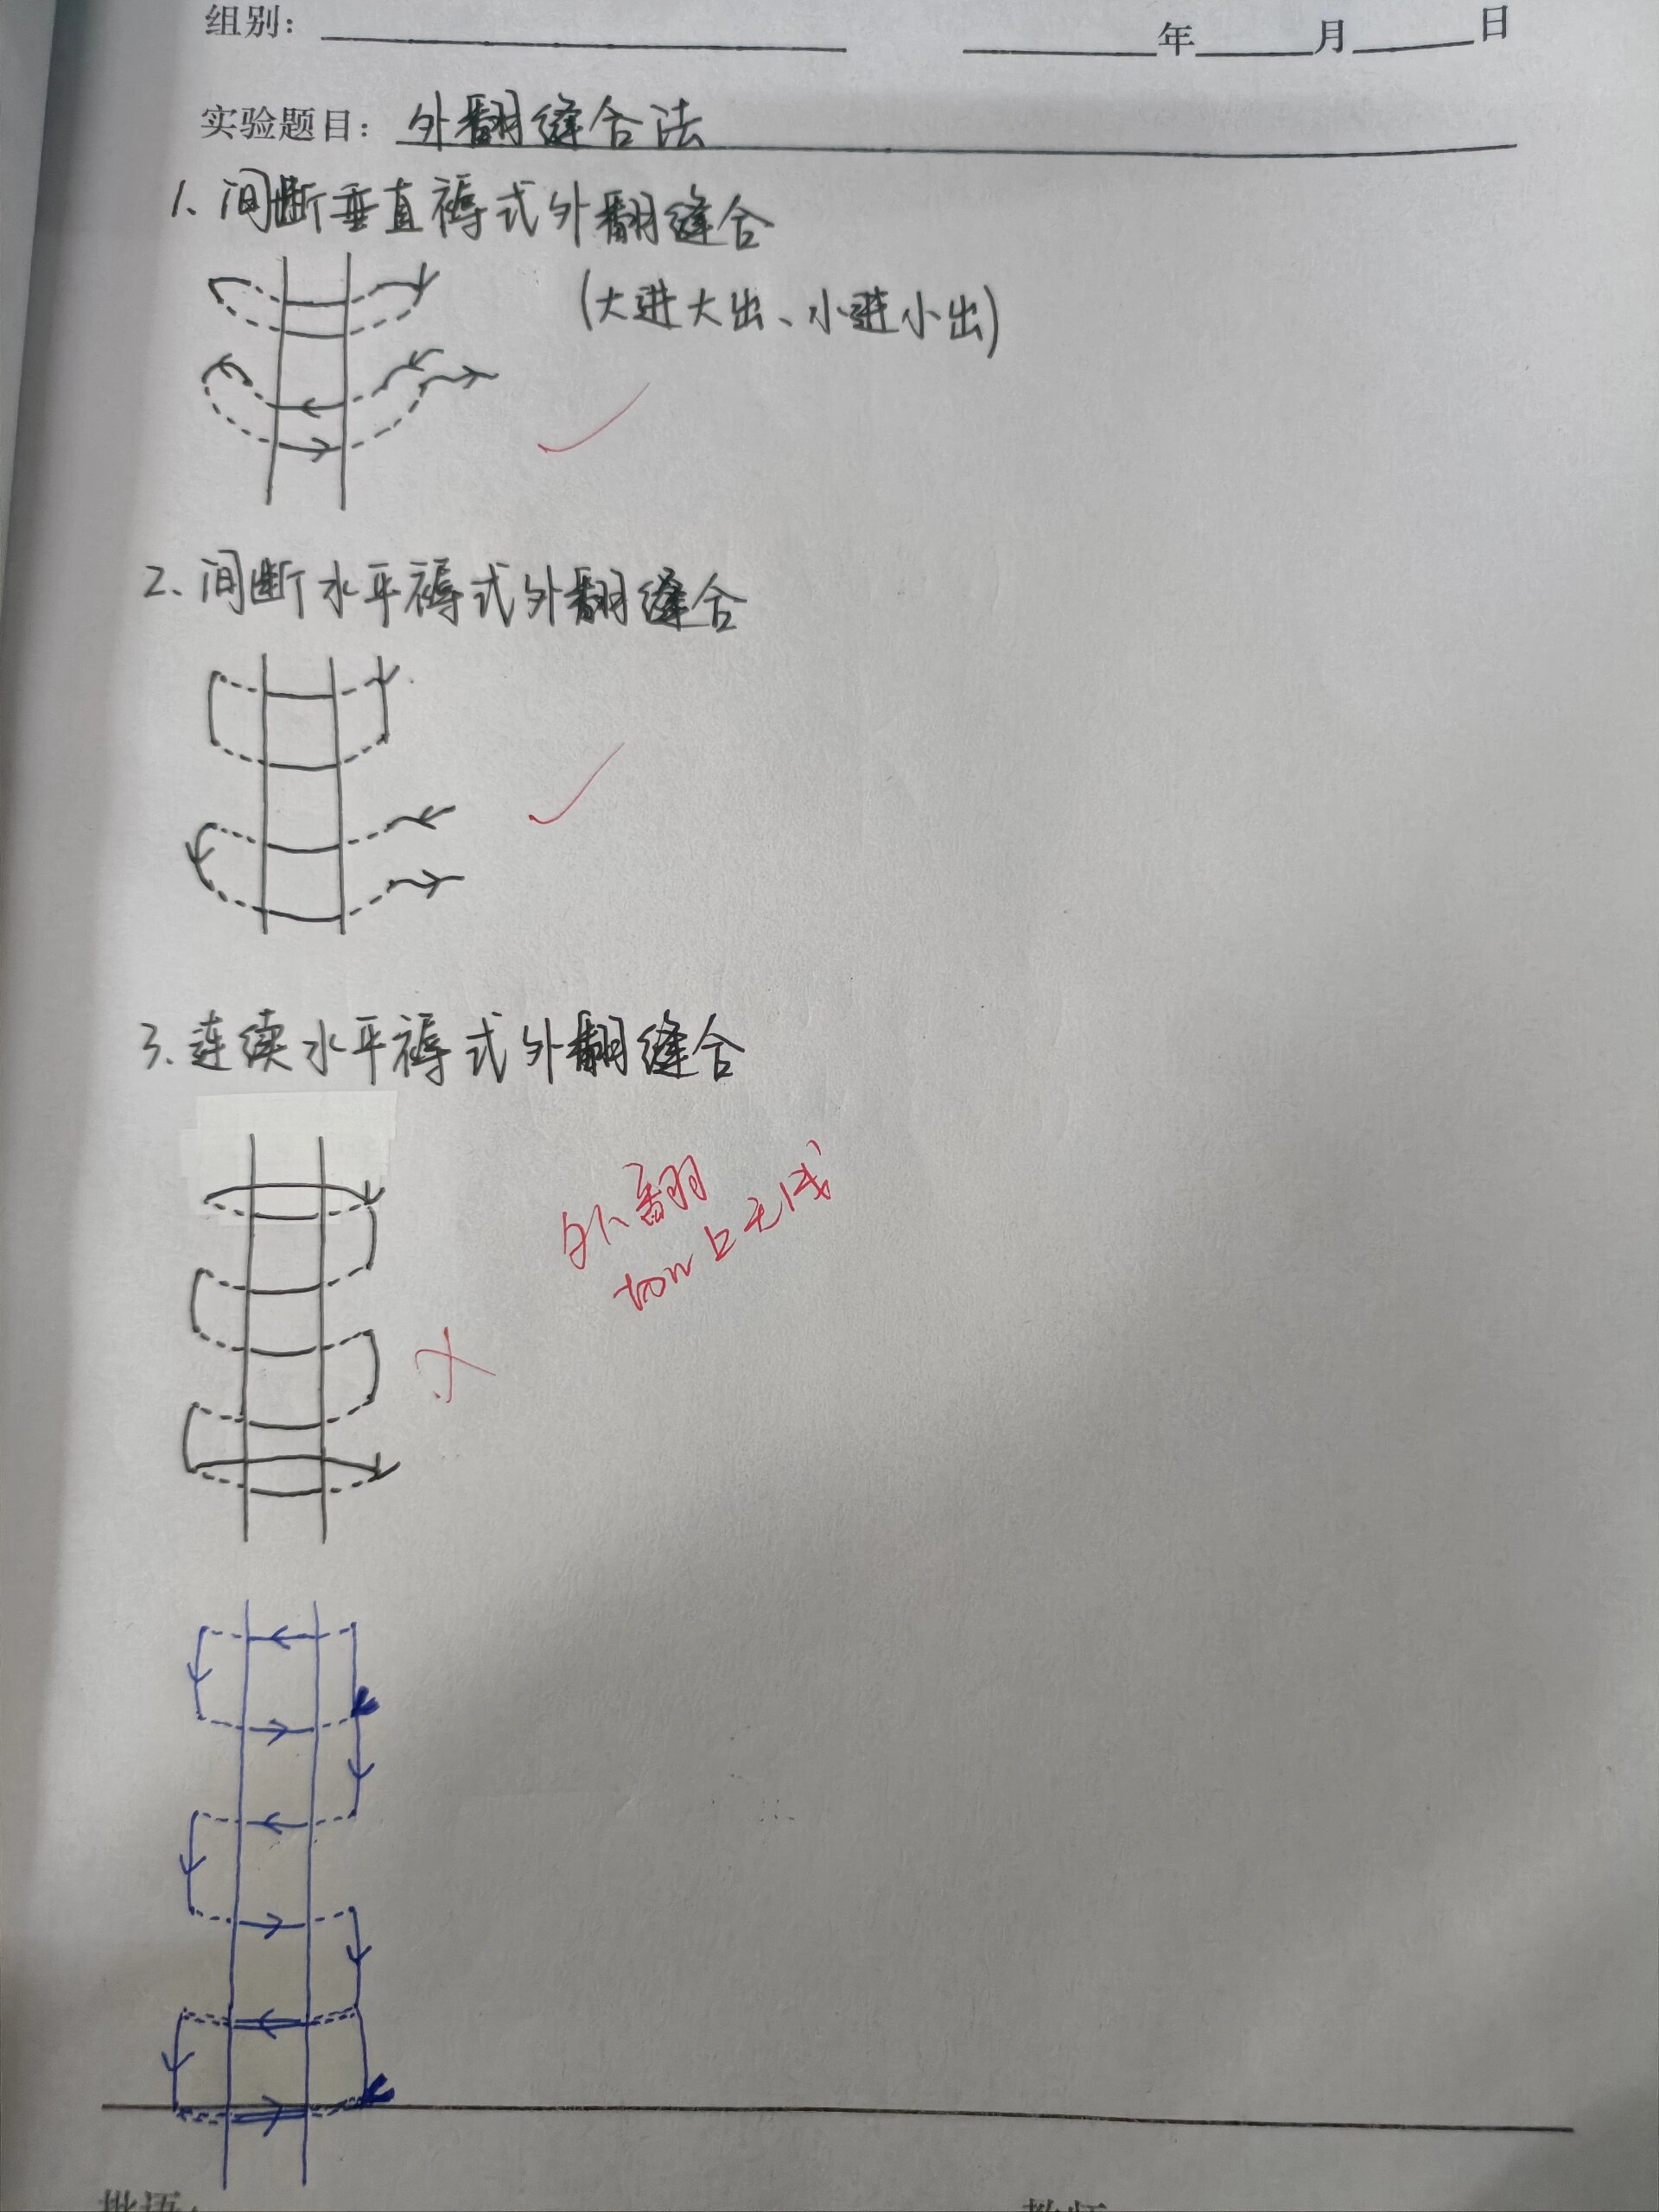 组别：
年 月 日
实验题目：外翻缝合法
1、间断垂直褥式外翻缝合
(大进大出、小进小出)
2、间断水平褥式外翻缝合
3、连续水平褥式外翻缝合
外翻
切口上无线